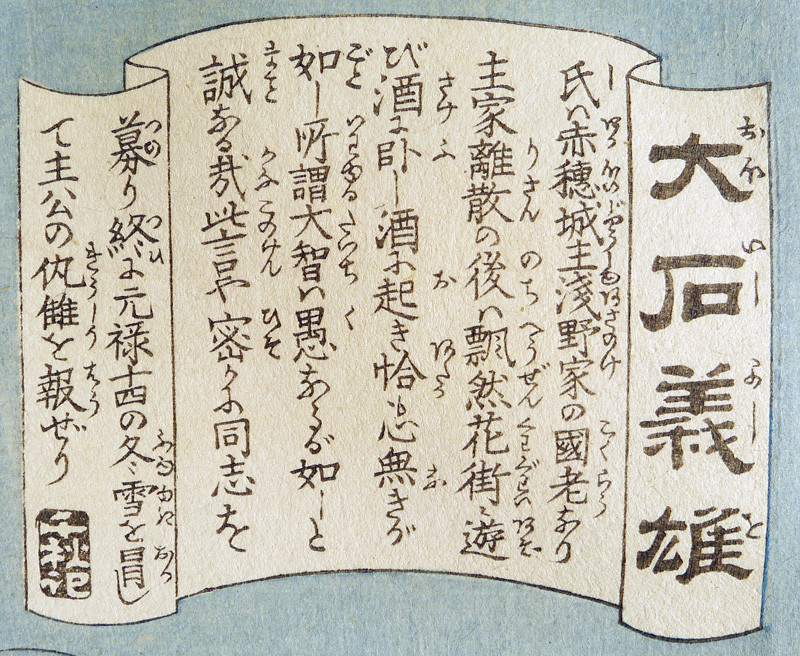 大石義雄
氏ハ赤穂城主淺野家の國老なり
主家離散の後ハ飄然花街ニ遊
び酒に卧し酒に起き恰も心無きが
如し所謂大智ハ愚なるが如しと
誠なる哉此言や密かに同志を
募り終に元禄十四の冬雪を冒し
て主公の仇讎を報ぜり